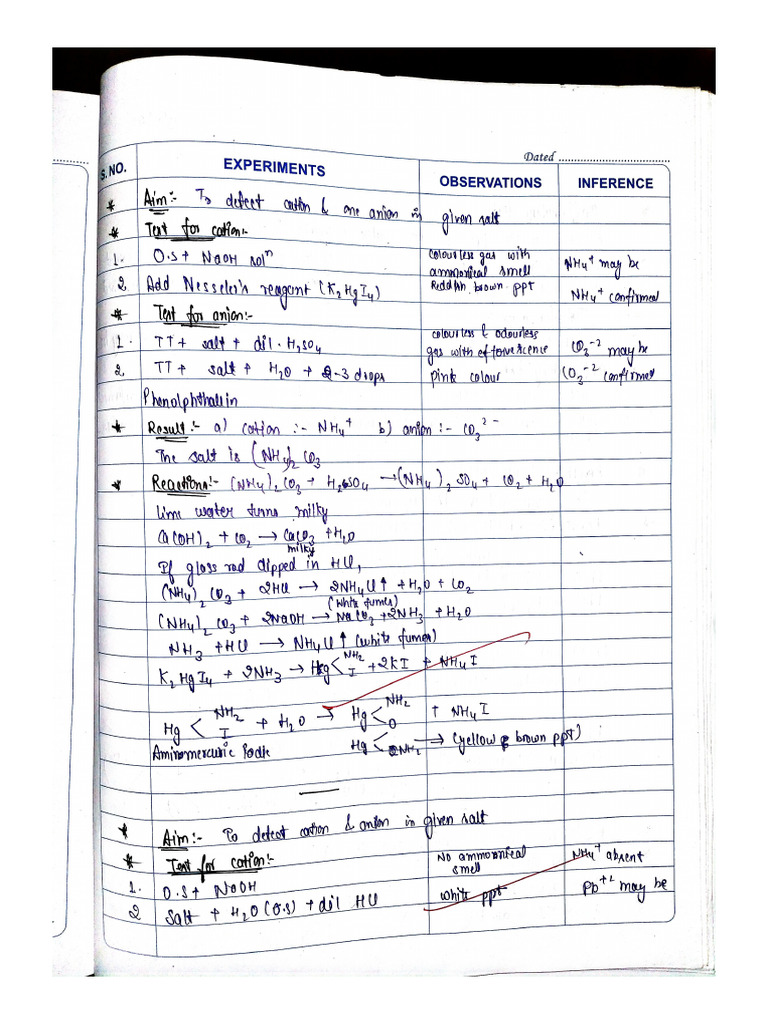 Dated
S. NO. EXPERIMENTS OBSERVATIONS INFERENCE
* Aim:- To detect cation & one anion in given salt
* Test for cation:-
1. O.S + NaOH solⁿ colourless gas with ammonical smell NH₄⁺ may be
2 Add Nesseler's reagent (K₂HgI₄) Reddish brown ppt NH₄⁺ confirmed
* Test for anion:-
1. TT + salt + dil. H₂SO₄ colourless & odourless gas with effervescence CO₃⁻² may be
2 TT + salt + H₂O + 2-3 drops pink colour CO₃⁻² confirmed
Phenolphthallin
* Result:- a) cation :- NH₄⁺ b) anion :- CO₃²⁻
The salt is (NH₄)₂CO₃
* Reactions:- (NH₄)₂CO₃ + H₂SO₄ → (NH₄)₂SO₄ + CO₂ + H₂O
lime water turns milky
Ca(OH)₂ + CO₂ → CaCO₃ + H₂O
milky
If glass rod dipped in HCl,
(NH₄)₂CO₃ + 2HCl → 2NH₄Cl↑ + H₂O + CO₂
(white fumes)
(NH₄)₂CO₃ + 2NaOH → NaCO₃ + 2NH₃ + H₂O
NH₃ + HCl → NH₄Cl↑ (white fumes)
K₂HgI₄ + 2NH₃ → Hg<NH₂ I + 2KI + NH₄I
Hg<NH₂ I + H₂O → Hg<NH₂ O + NH₄I
Aminomercuric Iodide Hg< NH₂ → (yellow brown ppt)
* Aim:- To detect cation & anion in given salt
* Test for cation:-
1. O.S + NaOH No ammonical smell NH₄⁺ absent
2 Salt + H₂O (O.S) + dil HCl white ppt Pb⁺² may be